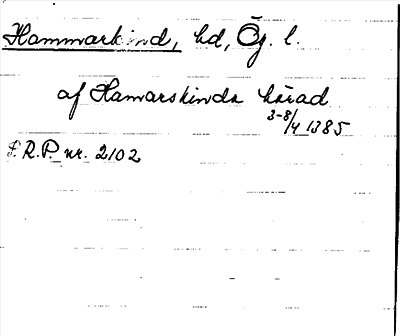 Hammarkind, hd, Ög. l.
af Hamarskinda härad
3-8/4 1385
S.R.P. nr. 2102